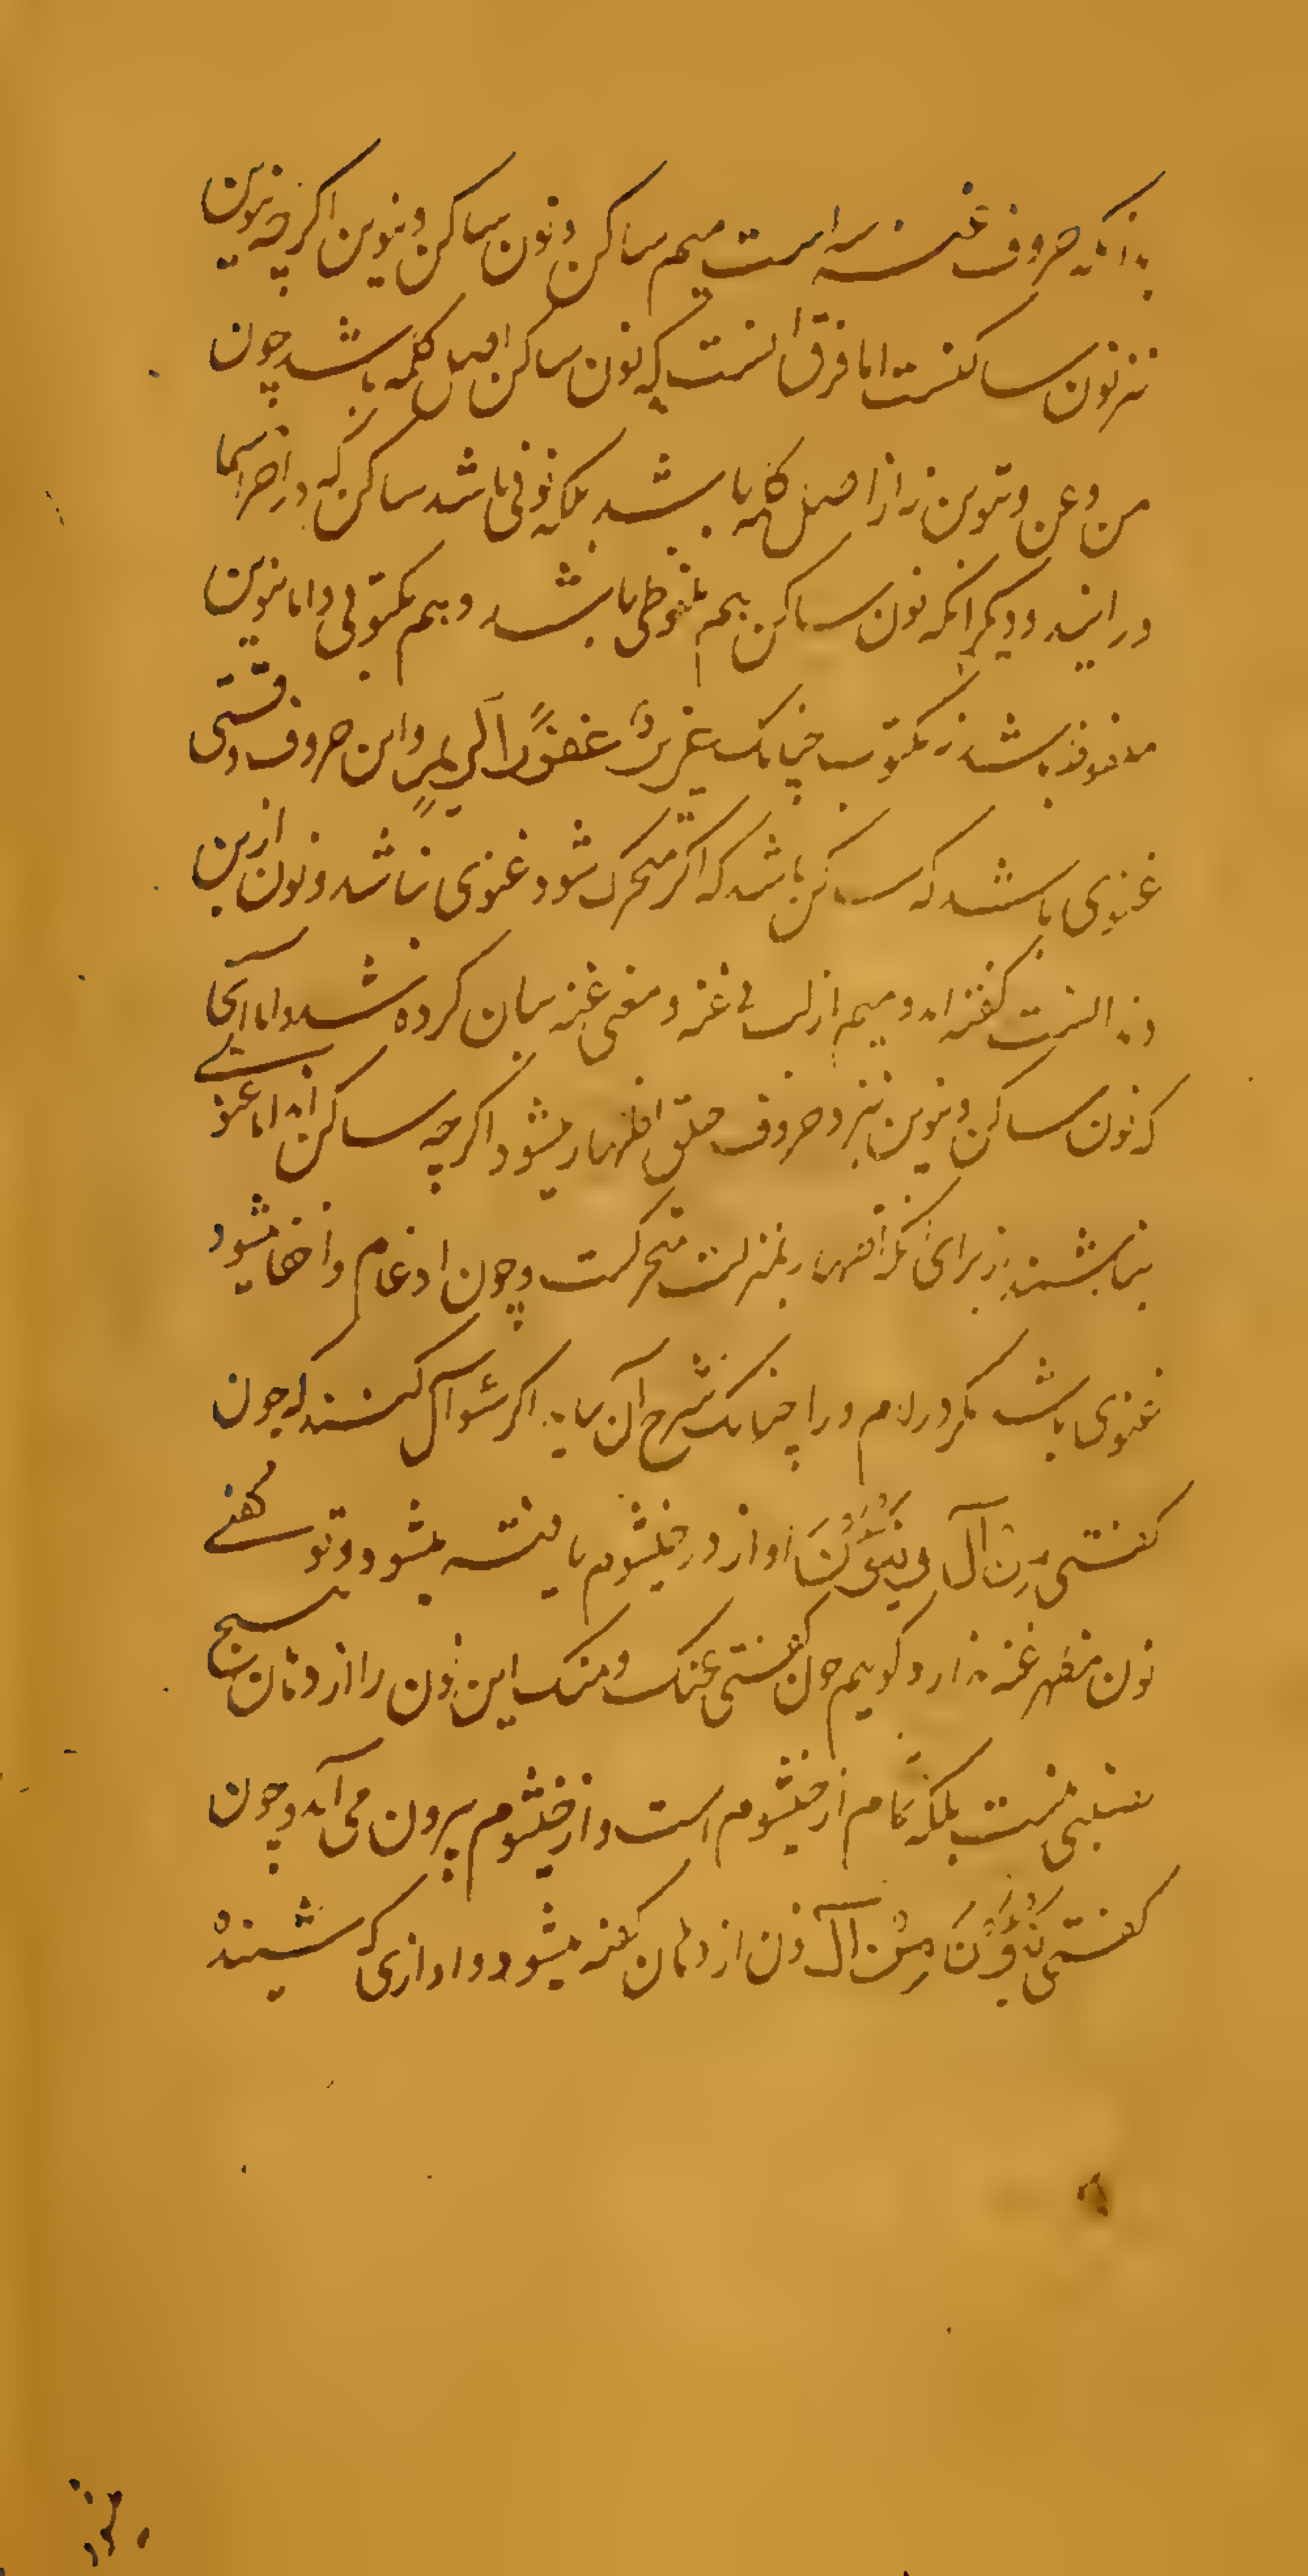 بدانکه حروف غنه سه است میم ساکن و نون ساکن و تنوین اکرچه تنوین
نیز نون ساکنست اما فرق انست که نون ساکن اصل کلمه باشد چون
من و عن و تنوین نه از اصل کلمه باشد بلکه نونی باشد ساکن که در اخر اسما
در ایند و دیکر انکه نون ساکن هم ملفوظی باشد و هم مکتوبی و اما تنوین
ملفوظ باشد نه مکتوب چنانک عزیزٌ غفورًا کریمٍ و این حروف وقتی
غنوی باشند که ساکن باشد که اکر متحرک شود غنوی نباشد و نون از بن
دندانست کفته اند و میم از لب فی غنه و معنی غنه بیان کرده شد و اما انجا
که نون ساکن و تنوین نیز د حروف حلق اظهار میشود اکرچه ساکن اند اما غنوی
نباشند زبرای انکه اظهار بمنزلت متحرکست و چون ادغام و اخفا میشود
غنوی باشد مکر در لام و را چنانک شرح آن بیاید اکر سؤآل کنند که چون
کفتی مِنْ آل یَنْئَوْنَ اواز در خیشوم یافته میشود و تو کفتی
نون مظهر غنه ندارد کوییم چون کفتی عنک و منک این نون را از دهان هیچ
نصیبی نیست بلکه تمام از خیشوم است و از خیشوم بیرون می آید و چون
کفتی یَنْئَوْنَ مِنْ آل نون از دهان کفته میشود و اوازی که شنیدهٔ